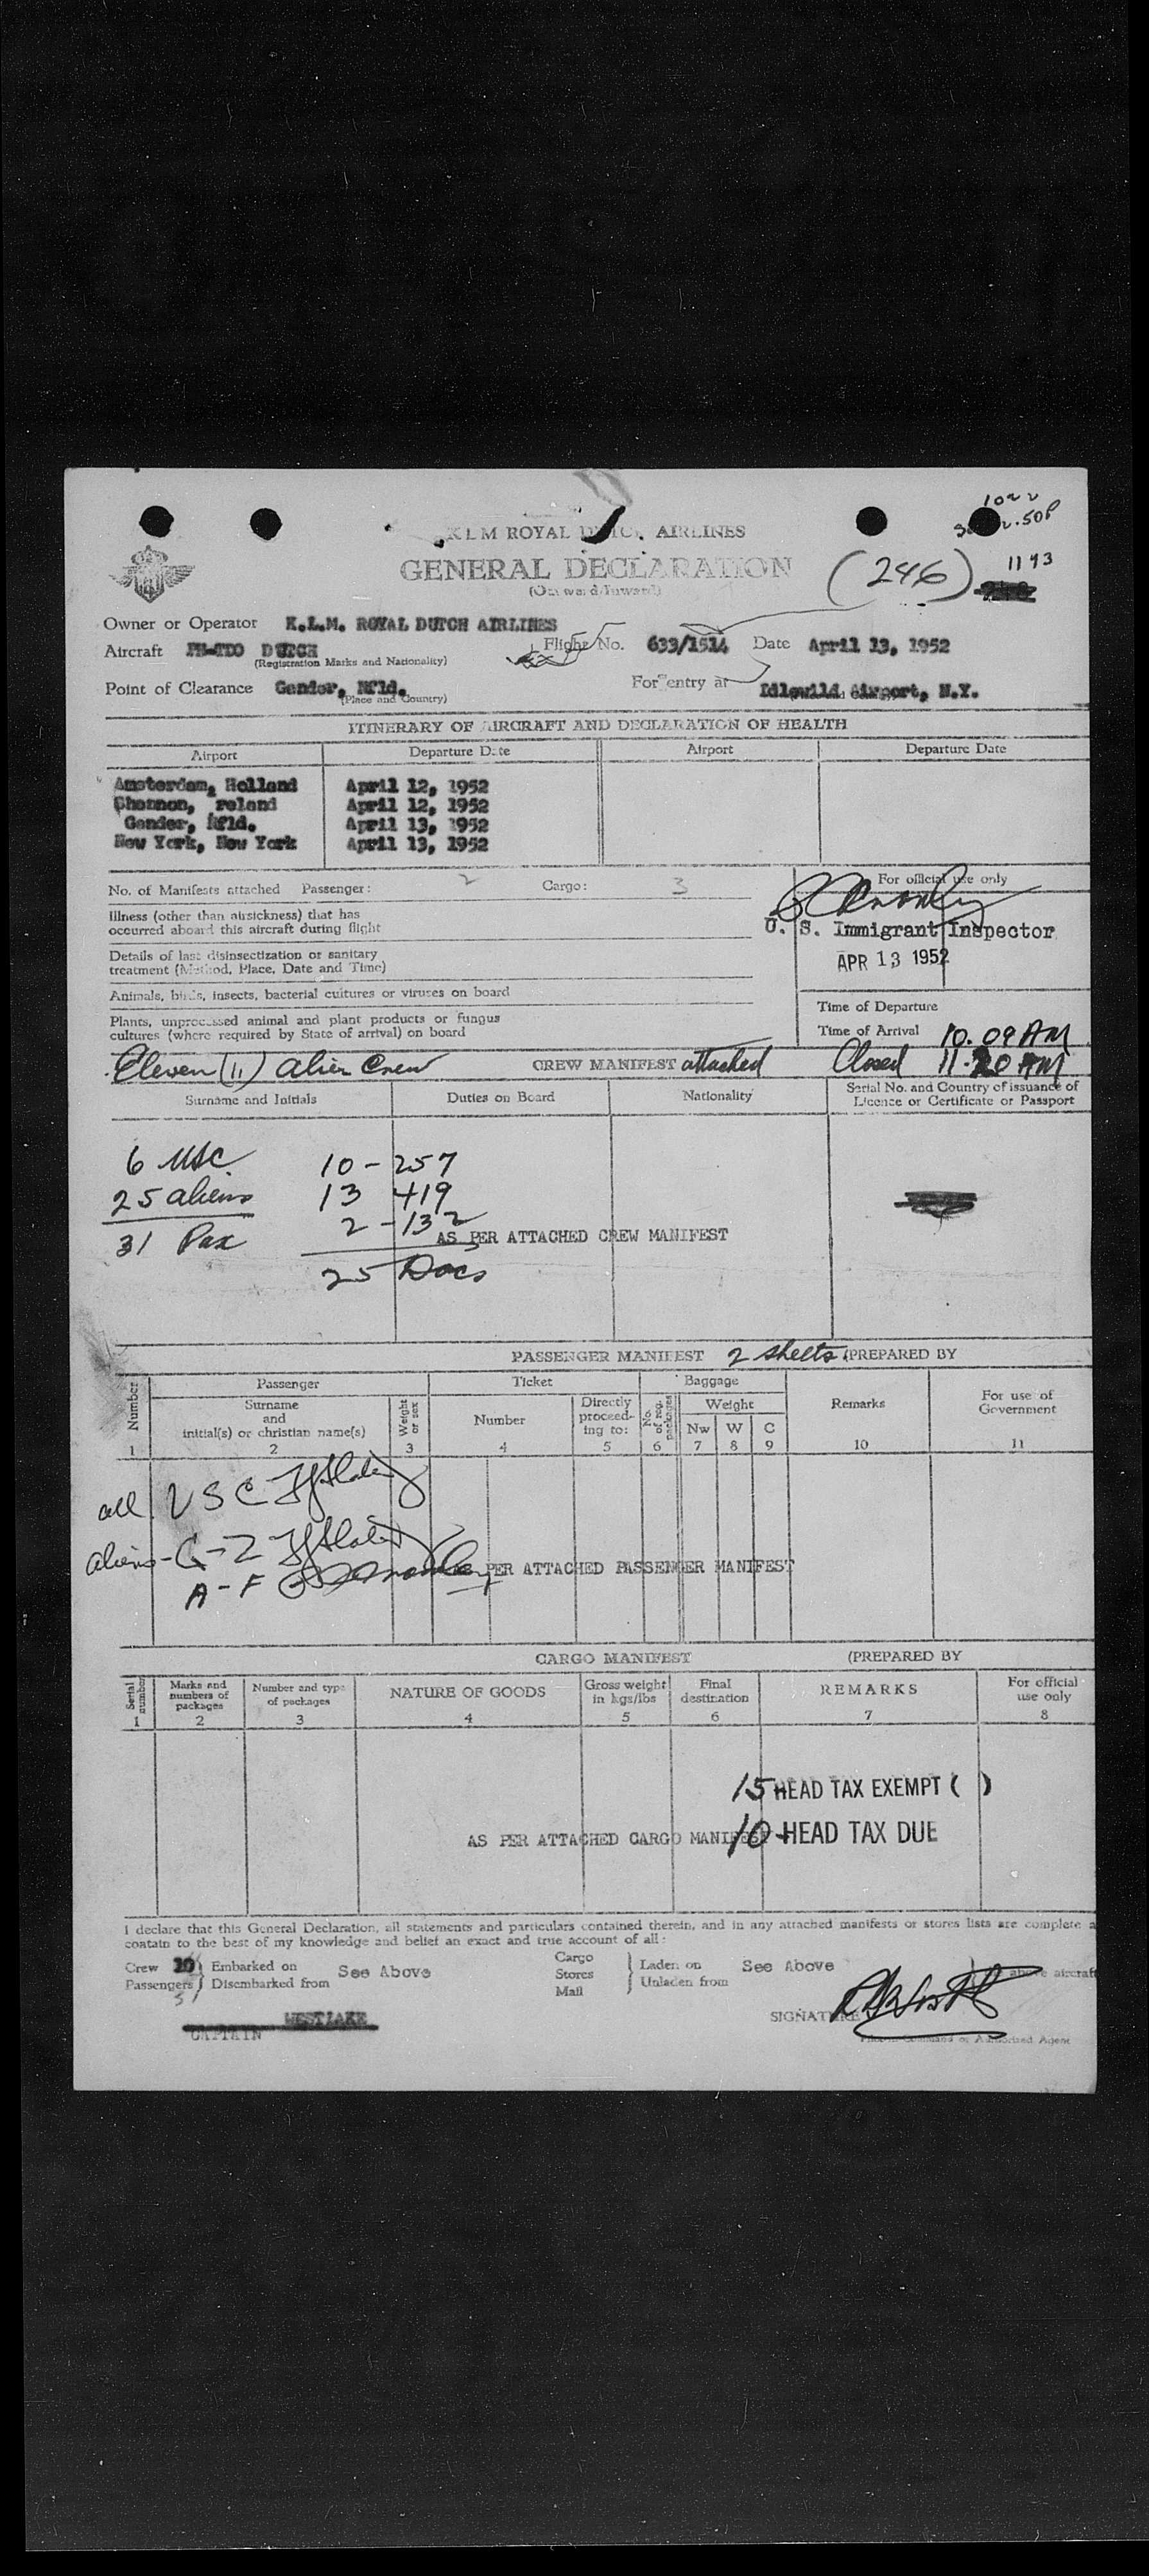 1022
2.50P
KLM ROYAL DUTCH AIRLINES
GENERAL DECLARATION
(Outward/Inward)
(246)
1193
Owner or Operator K.L.M. ROYAL DUTCH AIRLINES
Aircraft PH-TDO DUTCH Flight No. 633/1514 Date April 13, 1952
(Registration Marks and Nationality)
Point of Clearance Gander, Nfld. For entry at Idlewild Airport, N.Y.
(Place and Country)
ITINERARY OF AIRCRAFT AND DECLARATION OF HEALTH
Airport Departure Date Airport Departure Date
Amsterdam, Holland April 12, 1952
Shannon, reland April 12, 1952
Gander, Nfld. April 13, 1952
New York, New York April 13, 1952
No. of Manifests attached Passenger: 2 Cargo: 3
For official use only
Illness (other than airsickness) that has
occurred aboard this aircraft during flight
U. S. Immigrant Inspector
APR 13 1952
Details of last disinsectization or sanitary
treatment (Method, Place, Date and Time)
Animals, birds, insects, bacterial cultures or viruses on board
Plants, unprocessed animal and plant products or fungus
cultures (where required by State of arrival) on board
Time of Departure
Time of Arrival 10.09 AM
Eleven (11) alien Crew CREW MANIFEST attached Closed 11.20 AM
Surname and Initials Duties on Board Nationality Serial No. and Country of issuance of
Licence or Certificate or Passport
6 USC 10 - 257
25 aliens 13 419
31 Pax 2 - 132
AS PER ATTACHED CREW MANIFEST
25 Docs
PASSENGER MANIFEST 2 sheets (PREPARED BY
Number Passenger Ticket Baggage Remarks For use of
Government
Surname
and
initial(s) or christian name(s)
Weight or sex
Number
Directly
proceed-
ing to:
No. of reg. packages
Weight
Nw W C
1 2 3 4 5 6 7 8 9 10 11
all USC
aliens - G-Z
A-F
PER ATTACHED PASSENGER MANIFEST
CARGO MANIFEST (PREPARED BY
Serial number
Marks and
numbers of
packages
Number and type
of packages
NATURE OF GOODS
Gross weight
in kgs/lbs
Final
destination
REMARKS
For official
use only
1 2 3 4 5 6 7 8
15 HEAD TAX EXEMPT ( )
AS PER ATTACHED CARGO MANIFEST
10 HEAD TAX DUE
I declare that this General Declaration, all statements and particulars contained therein, and in any attached manifests or stores lists are complete a
contain to the best of my knowledge and belief an exact and true account of all:
Crew 10 Embarked on
Passengers 31 Disembarked from
See Above
Cargo
Stores
Mail
Laden on
Unladen from
See Above
above aircraft
WESTLAKE
CAPTAIN
SIGNATURE
Pilot in Command or Authorized Agent